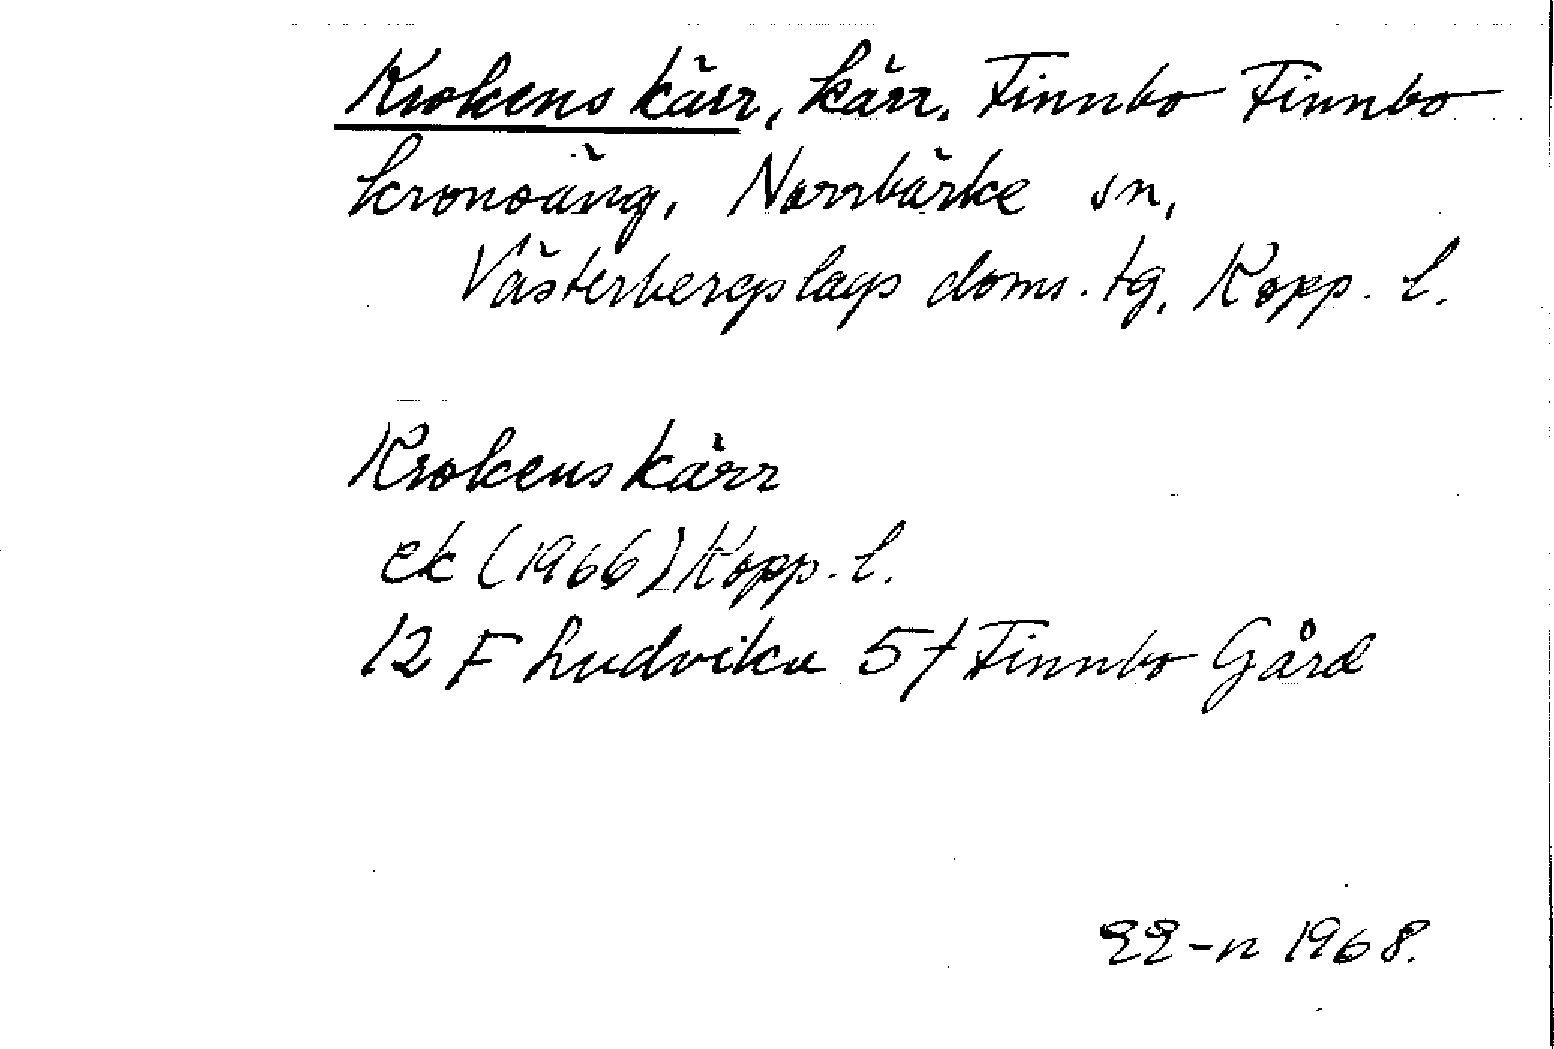 Krokens kärr, kärr. Finnbo Finnbo
kronoäng, Norrbärke sn,
Västerbergslags doms. tg, Kopp. l.
Krokens kärr
ek (1966) Kopp. l.
12 F Ludvika 5f Finnbo Gård
EE-n 1968.